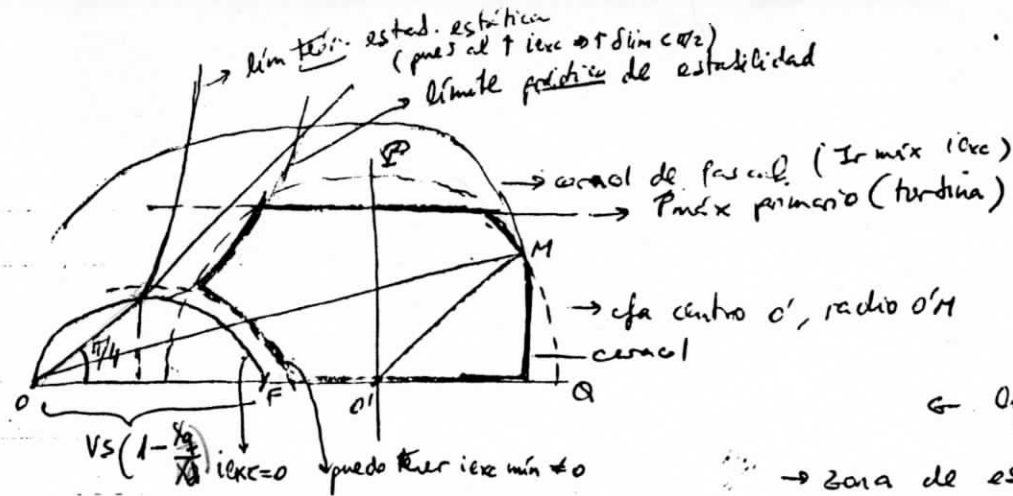 → lím teór. estad. estática
(pues al ↑ iexc ⇒ ↑ δlim < π/2)
→ límite práctico de estabilidad
P
→ caracol de Pascal (Ir máx iexc)
→ Pmáx primario (turbina)
M
→ cfa centro O', radio O'M
caracol
π/4
O F O' Q
VS(1 - Xq/Xd) iexc=0 puedo tener iexc mín ≠ 0
→ zona de es